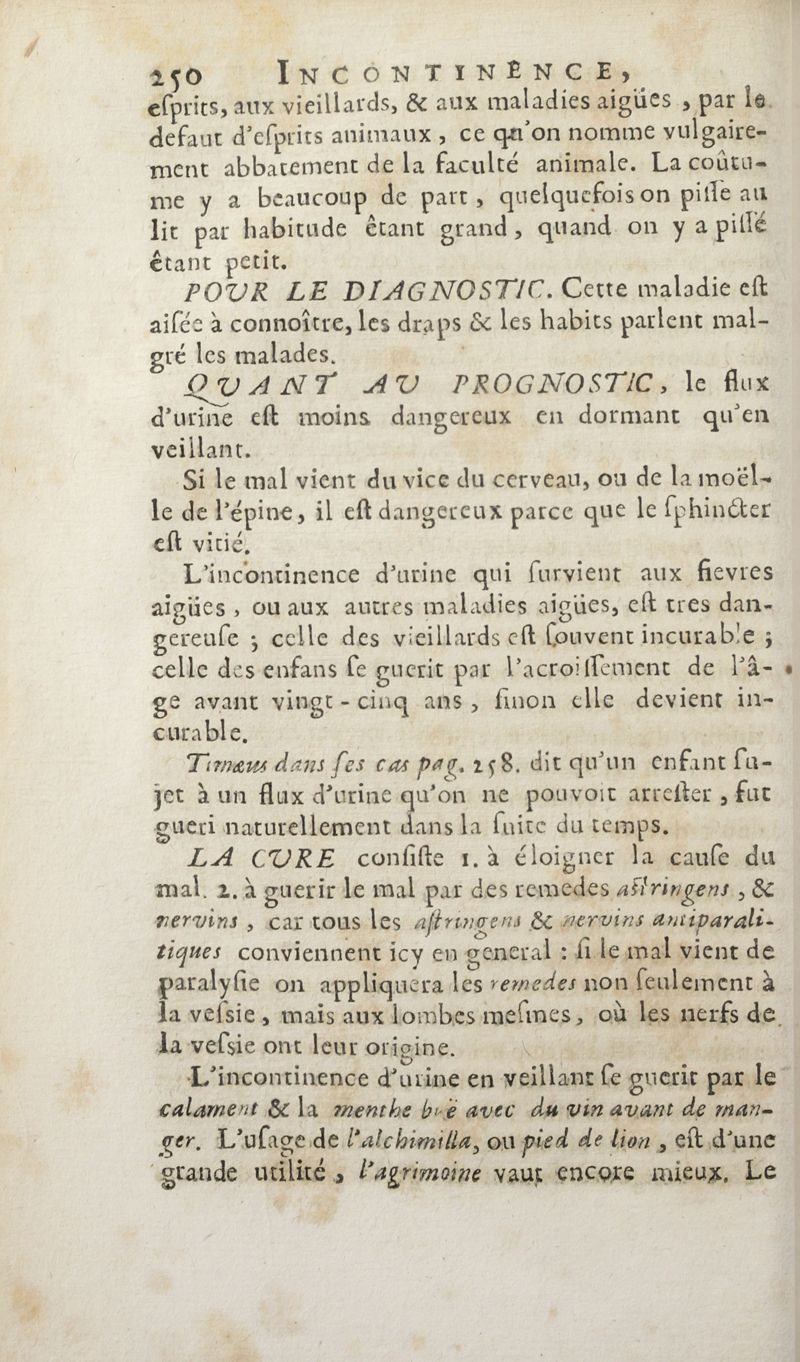 250 INCONTINÊNCE,
eſprits, aux vieillards, & aux maladies aigües , par le
defaut d'eſprits animaux , ce qu'on nomme vulgaire-
ment abbatement de la faculté animale. La coûtu-
me y a beaucoup de part , quelquefois on piſſe au
lit par habitude êtant grand , quand on y a piſſé
êtant petit.
POVR LE DIAGNOSTIC. Cette maladie eſt
aiſée à connoître, les draps & les habits parlent mal-
gré les malades.
QVANT AV PROGNOSTIC, le flux
d'urine eſt moins dangereux en dormant qu'en
veillant.
Si le mal vient du vice du cerveau, ou de la moël-
le de l'épine, il eſt dangereux parce que le ſphincter
eſt vitié.
L'incontinence d'urine qui ſurvient aux fievres
aigües , ou aux autres maladies aigües, eſt tres dan-
gereuſe ; celle des vieillards eſt ſouvent incurable ;
celle des enfans ſe guerit par l'acroiſſement de l'â-
ge avant vingt-cinq ans , ſinon elle devient in-
curable.
Timæus dans ſes cas pag. 258. dit qu'un enfant ſu-
jet à un flux d'urine qu'on ne pouvoit arreſter , fut
gueri naturellement dans la ſuite du temps.
LA CVRE conſiſte 1. à éloigner la cauſe du
mal. 2. à guerir le mal par des remedes aſtringens , &
nervins , car tous les aſtringens & nervins antiparali-
tiques conviennent icy en general : ſi le mal vient de
paralyſie on appliquera les remedes non ſeulement à
la veſsie , mais aux lombes meſmes , où les nerfs de
la veſsie ont leur origine.
L'incontinence d'urine en veillant ſe guerit par le
calament & la menthe b ë avec du vin avant de man-
ger. L'uſage de l'alchimilla, ou pied de lion , eſt d'une
grande utilité , l'agrimoine vaut encore mieux. Le